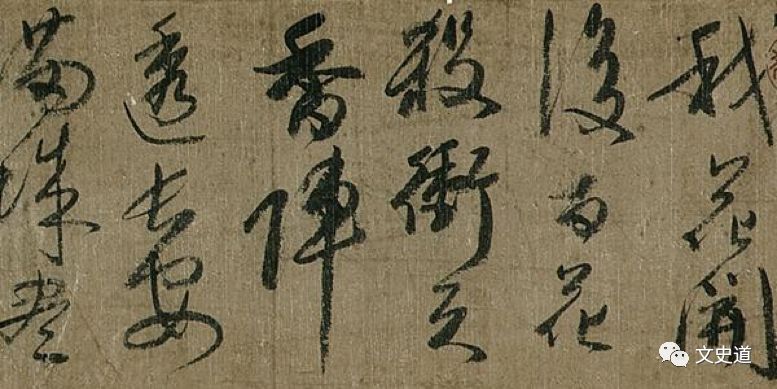 我花開
後百花
殺衝天
香陣
透長安
滿城盡
文史道